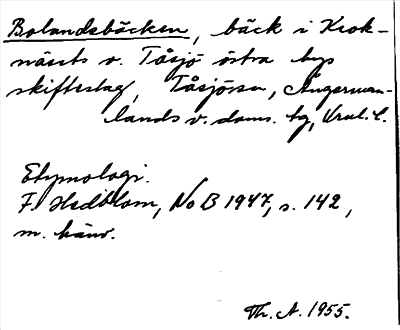 Bolandsbäcken, bäck i Krok-
näsets o. Tåsjö östra bys
skifteslag, Tåsjö sn, Ångerman-
lands v. doms. tg, Vnl. l.
Etymologi.
F. Hedblom, NoB 1947, s. 142,
m. hänv.
Th. A. 1955.